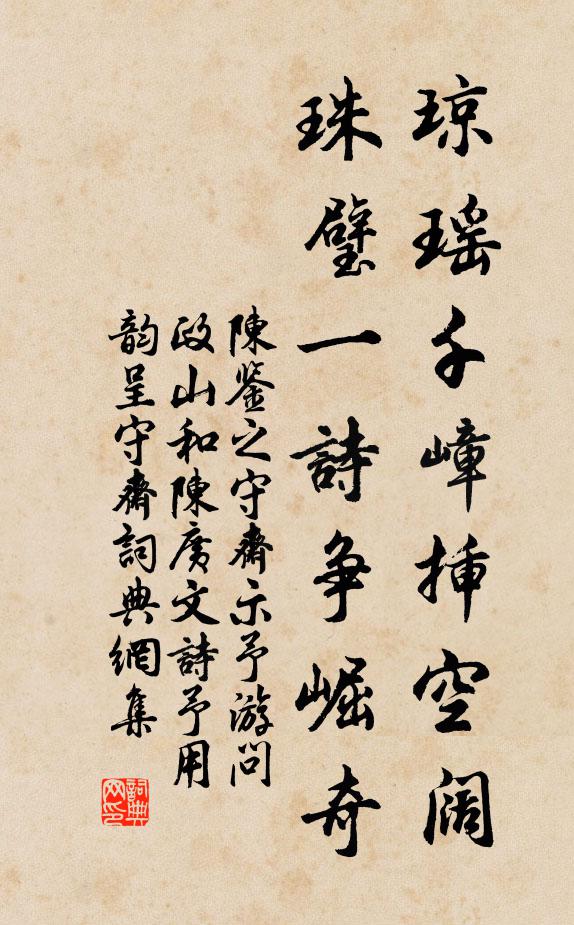 琼瑶千嶂插空阔
珠璧一詩争崛奇
陳鉴之守齋示予游問
政山和陳廣文詩予用
韵呈守齋詞典網集
詞典网印